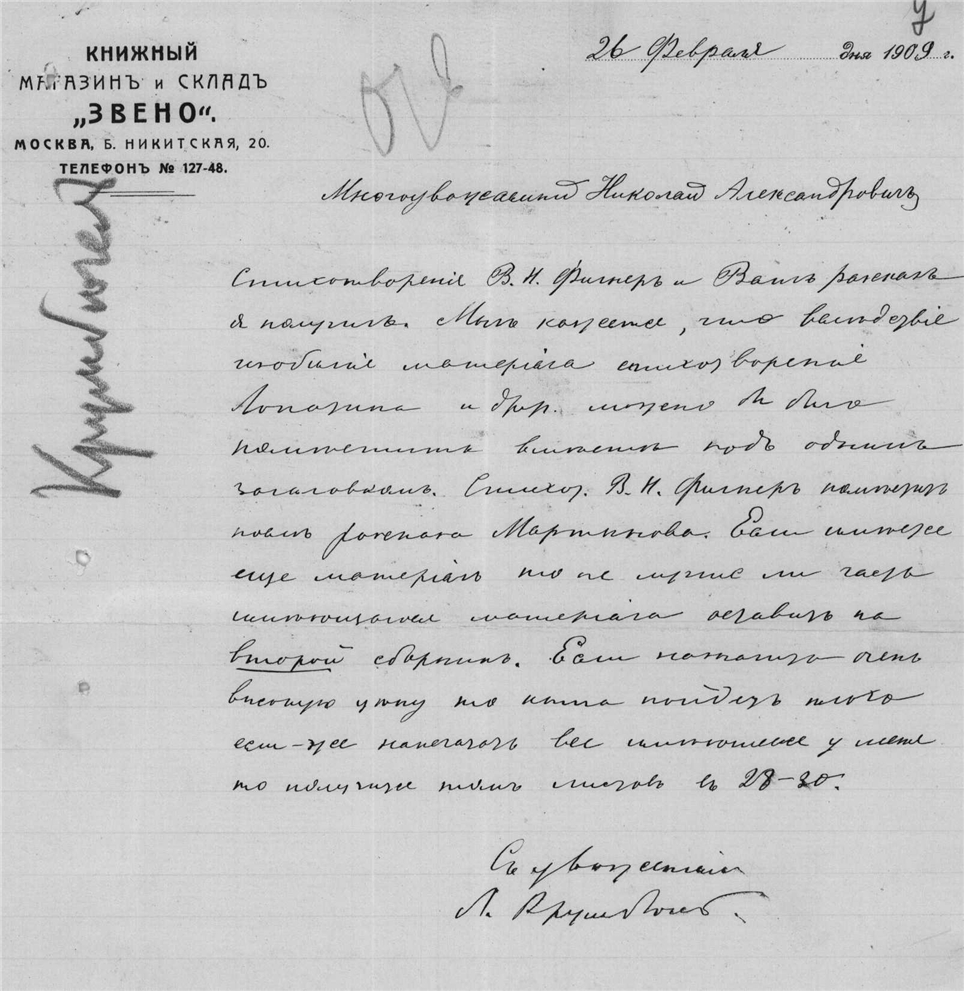 КНИЖНЫЙ
МАГАЗИНЪ и СКЛАДЪ
„ЗВЕНО“.
МОСКВА, Б. НИКИТСКАЯ, 20.
ТЕЛЕФОНЪ № 127-48.
26 Февраля дня 1909 г.
Многоуважаемый Николай Александровичъ
Стихотворенія В. Н. Фигнеръ и Вашъ разсказъ
я получилъ. Мнѣ кажется, что вслѣдствіе
изобилія матеріала стихотворенія
Лопатина и друг. можно бы было
помѣстить вмѣстѣ подъ однимъ
заголовкомъ. Стихот. В. Н. Фигнеръ помѣстить
послѣ разсказа Мартынова. Если имѣется
еще матеріалъ то не лучше ли часть
имѣющагося матеріала оставить на
второй сборникъ. Если назначить очень
высокую цѣну то книга пойдетъ плохо
если-же напечатать все имѣющееся у меня
то получится томъ листовъ въ 28-30.
Съ уваженіемъ
Л. Крумбюгель.
Крумбюгель